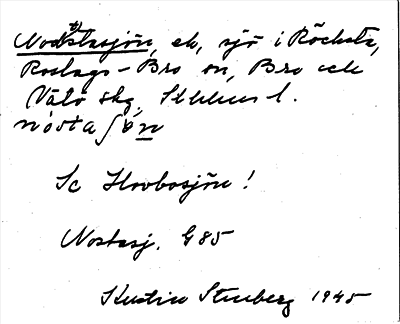 Nordstasjön, ek, sjö i Röcksta,
Roslags-Bro sn, Bro och
Vätö skg, Sthlms l.
nòstaʃö́n
Se Hovbosjön!
Nostasj. G85
Kerstin Stenberg 1945